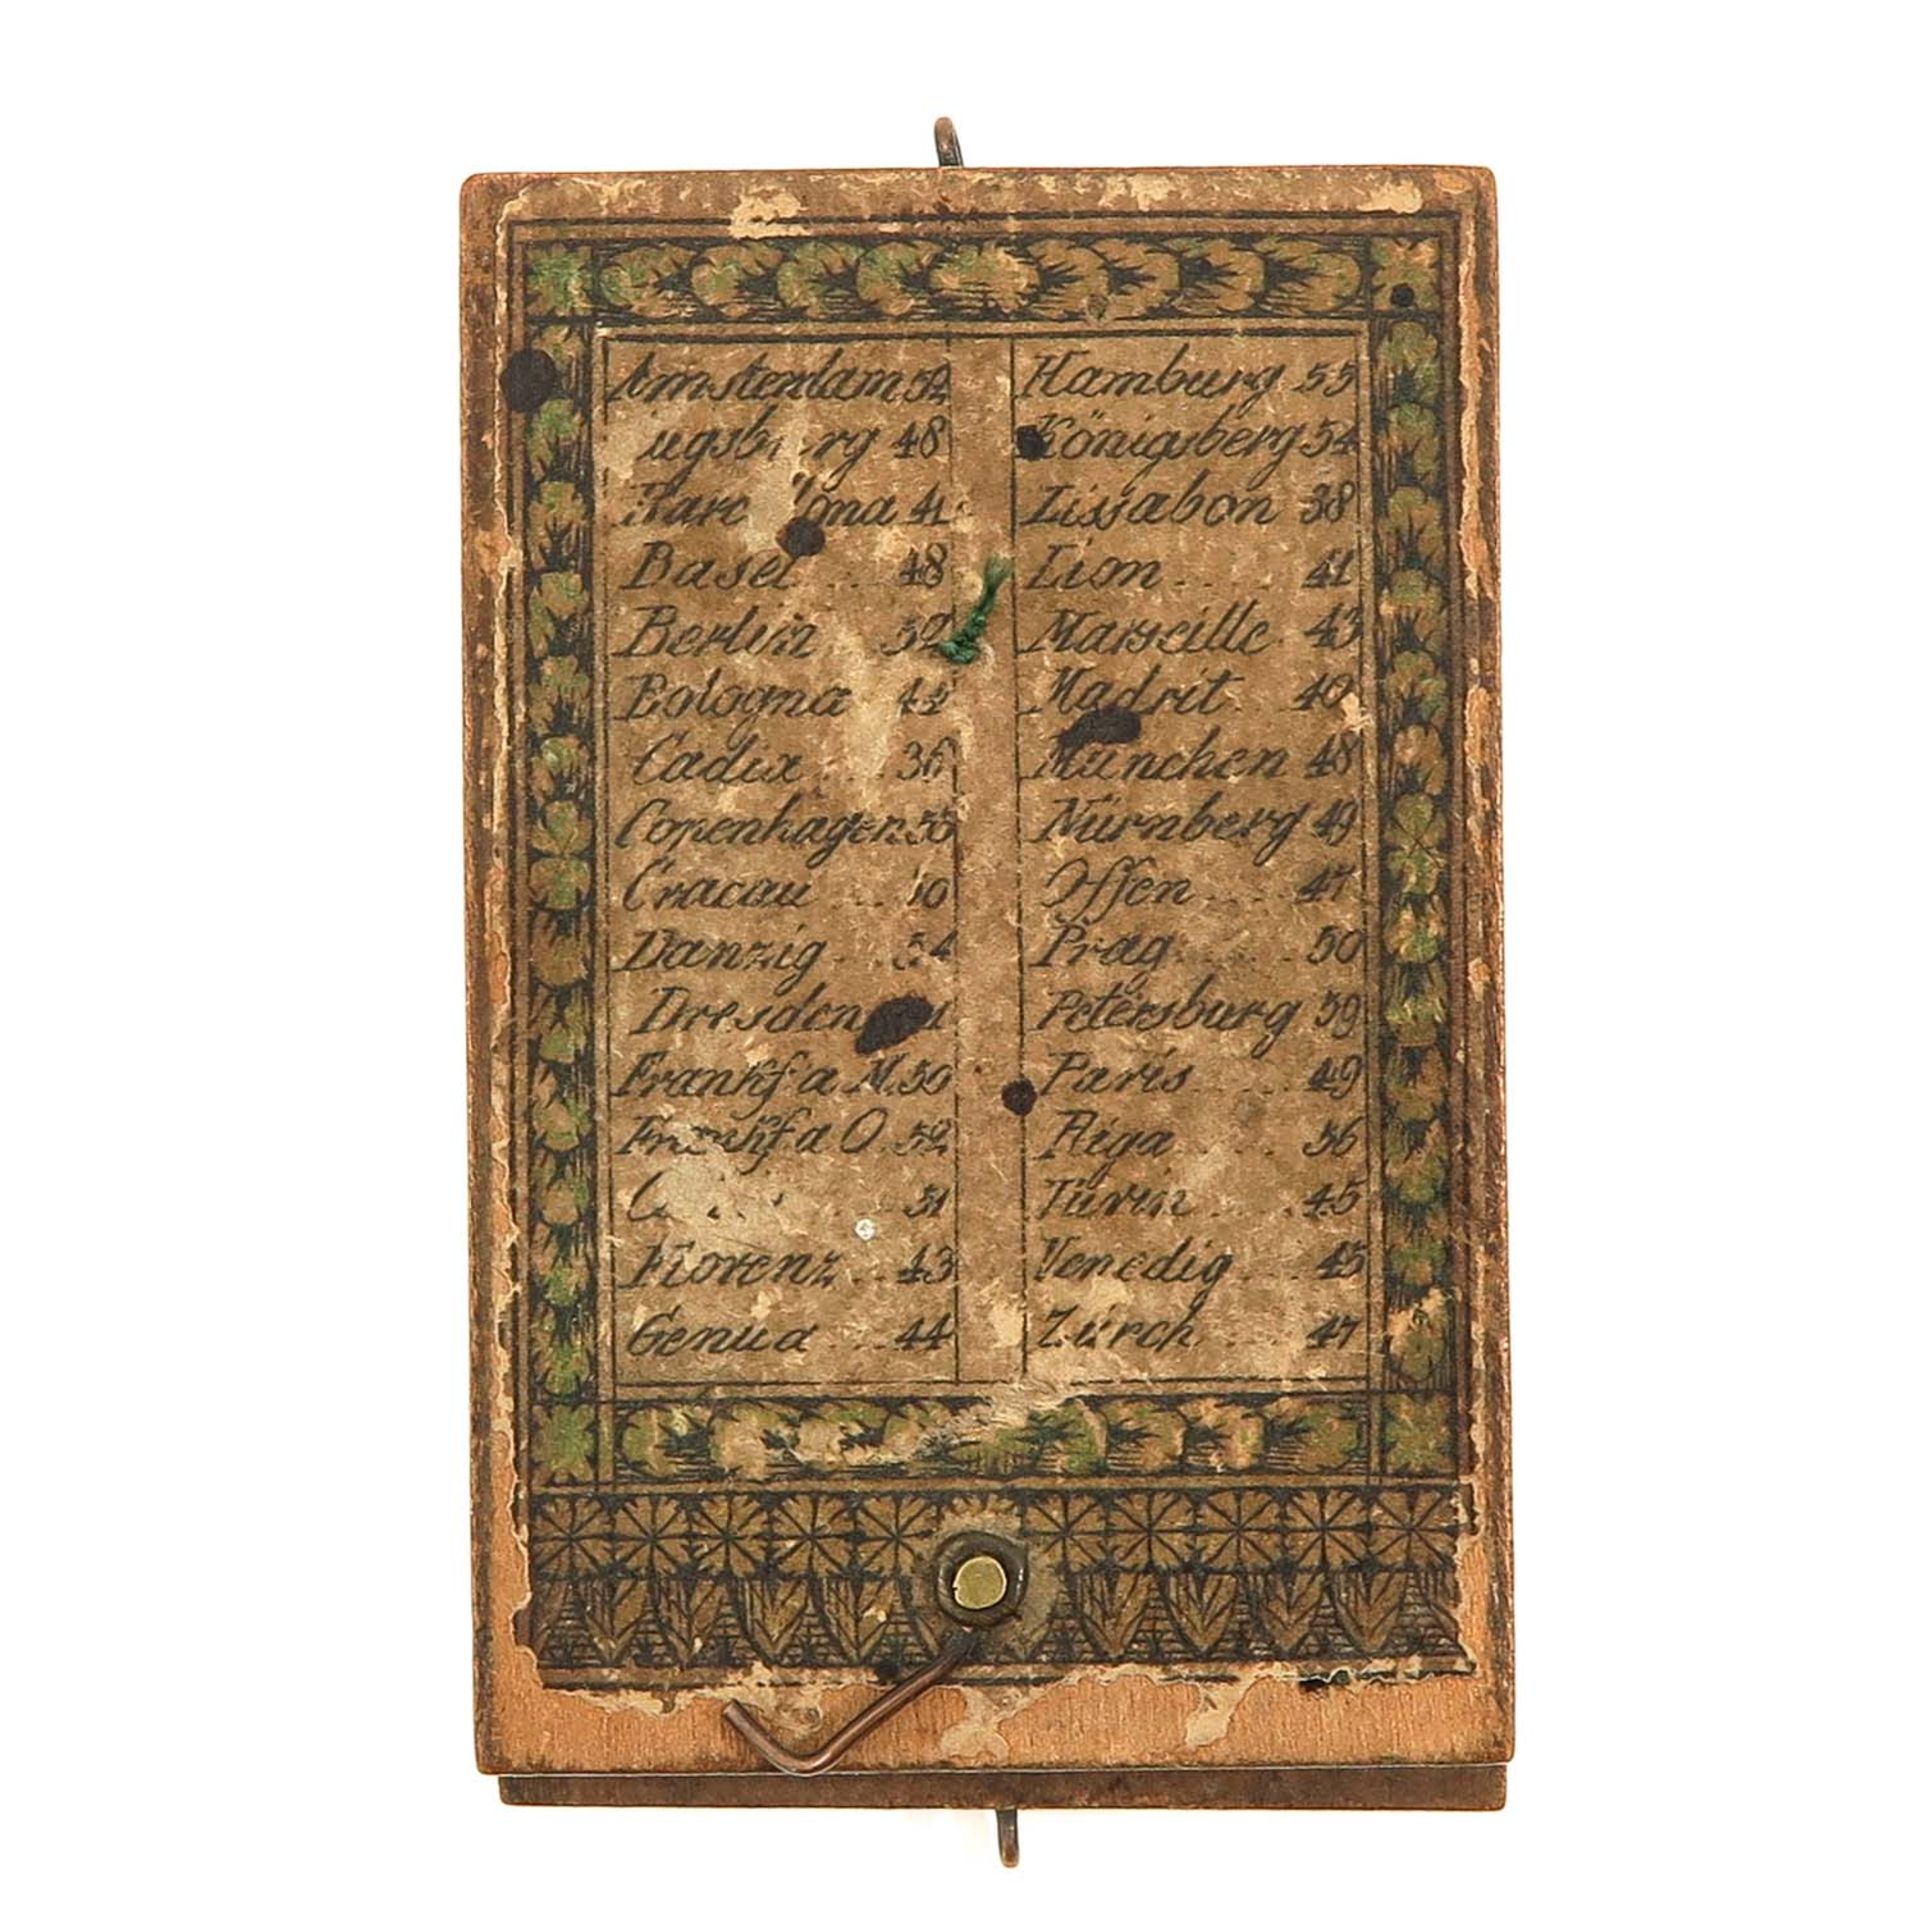 Amsterdam 52
48
41
Basel .... 48
Berlin .. 52
Bologna 44
Cadix .... 36
Copenhagen 55
Cracau ...
Danzig ... 54
Dresden
Frankf a M. 50
Frankf a O. 52
51
Florenz .. 43
Genua .... 44
Hamburg 53
Königsberg 54
Lissabon 38
Lion ..... 41
Marseille 43
Madrit 40
München 48
Nürnberg 49
Offen ..... 47
Prag ...... 50
Petersburg 59
Paris ..... 49
Riga ..... 56
Türin ..... 45
Venedig ... 45
Zürch .... 47